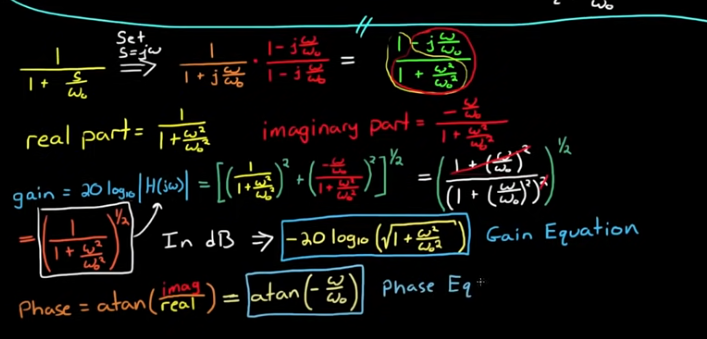 ω₀
1 / (1 + s/ω₀) Set S=jω ⇒ 1 / (1 + j ω/ω₀) · (1 - j ω/ω₀) / (1 - j ω/ω₀) = (1 - j ω/ω₀) / (1 + ω²/ω₀²)
real part = 1 / (1 + ω²/ω₀²) imaginary part = (-ω/ω₀) / (1 + ω²/ω₀²)
gain = 20 log₁₀ |H(jω)| = [(1 / (1 + ω²/ω₀²))² + ((-ω/ω₀) / (1 + ω²/ω₀²))²]^1/2 = ((1 + (ω/ω₀)²) / (1 + (ω/ω₀)²)²)^1/2
= (1 / (1 + ω²/ω₀²))^1/2 In dB ⇒ -20 log₁₀ (√(1 + ω²/ω₀²)) Gain Equation
Phase = atan(imag/real) = atan(-ω/ω₀) Phase Eq